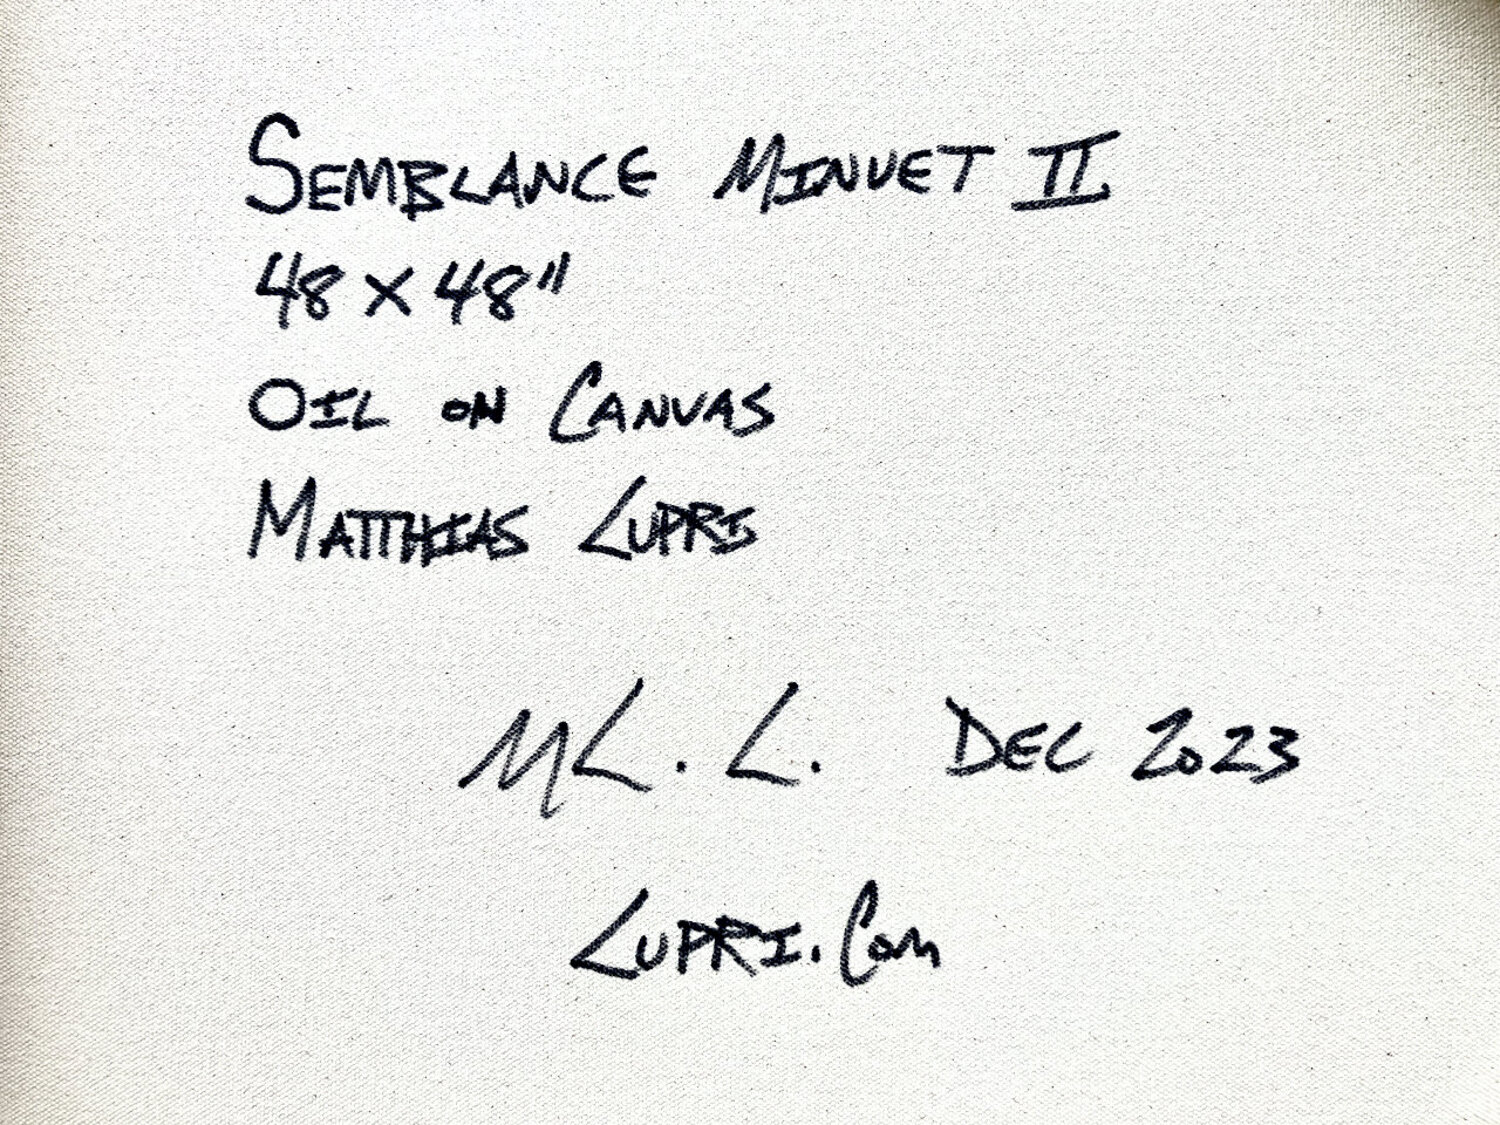 Semblance Minuet II
48 x 48"
Oil on Canvas
Matthias Lupri
ML. L. Dec 2023
Lupri.Com